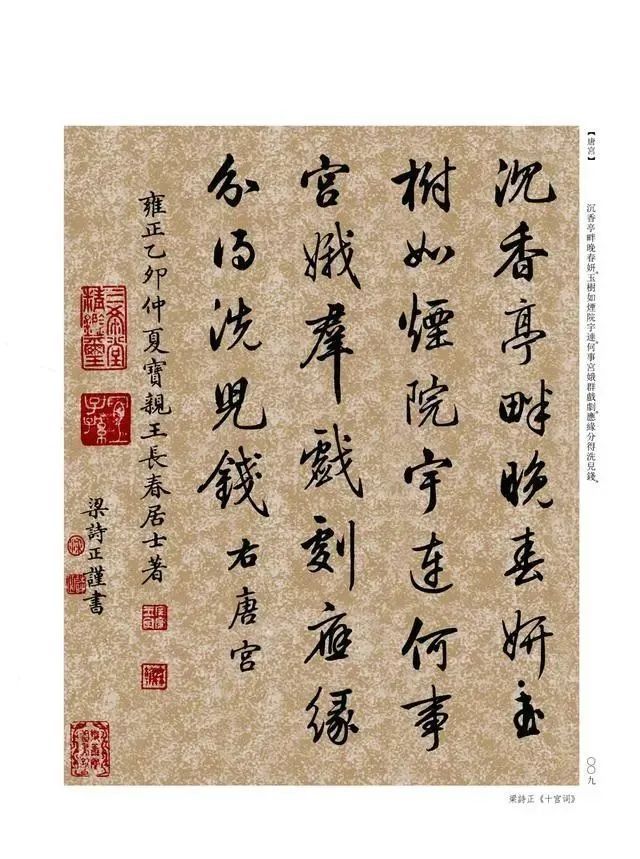 【唐宮】
沉香亭畔晚春妍。玉樹如煙院宇連。何事宮娥群戲劇。應緣分得洗兒錢。
沉香亭畔晚春妍玉
樹如煙院宇連何事
宮娥羣戲劇應緣
分得洗兒錢右唐宮
雍正乙卯仲夏寶親王長春居士著
梁詩正謹書
三希堂精鑑璽
宜子孫
〇〇九
梁詩正《十宮词》